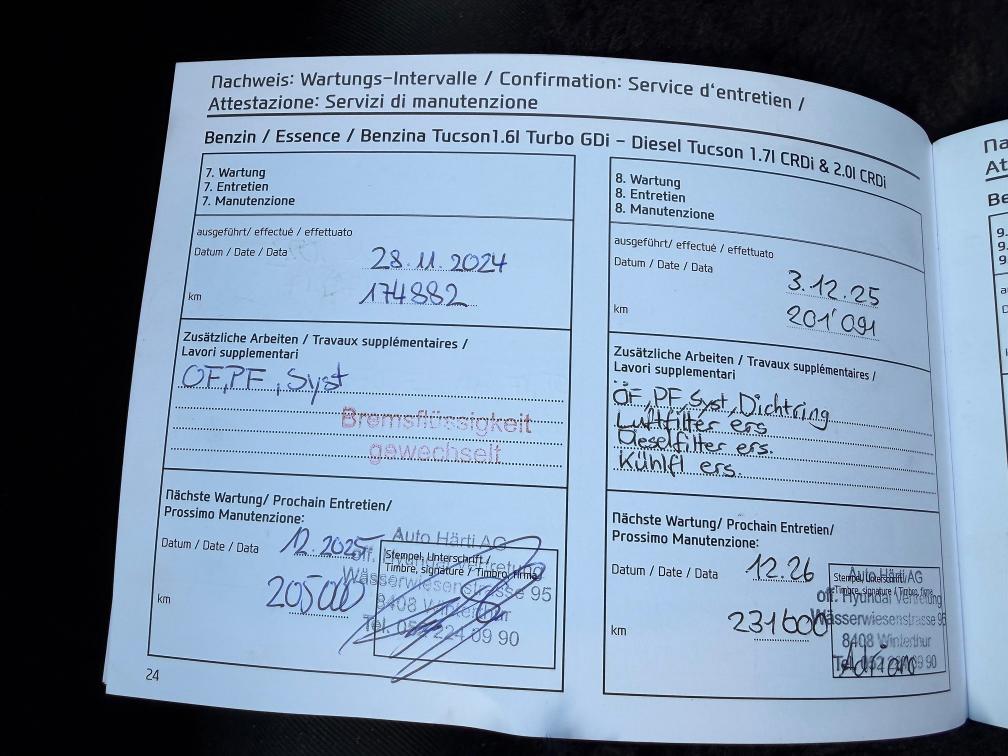 Nachweis: Wartungs-Intervalle / Confirmation: Service d'entretien /
Attestazione: Servizi di manutenzione
Benzin / Essence / Benzina Tucson1.6l Turbo GDi – Diesel Tucson 1.7l CRDi & 2.0l CRDi
7. Wartung
7. Entretien
7. Manutenzione
ausgeführt/ effectué / effettuato
Datum / Date / Data 28.11.2024
km 174882
Zusätzliche Arbeiten / Travaux supplémentaires /
Lavori supplementari
ÖF, PF, Syst
Bremsflüssigkeit
gewechselt
Nächste Wartung/ Prochain Entretien/
Prossimo Manutenzione:
Datum / Date / Data 12.2025
km 205000
Auto Härti AG
Stempel, Unterschrift /
Timbre, signature / Timbro, firma
off. Hyundai Vertretung
Wässerwiesenstrasse 95
8408 Winterthur
Tel. 052 224 09 90
24
8. Wartung
8. Entretien
8. Manutenzione
ausgeführt/ effectué / effettuato
Datum / Date / Data 3.12.25
km 201'091
Zusätzliche Arbeiten / Travaux supplémentaires /
Lavori supplementari
ÖF, PF, Syst, Dichtring
Luftfilter ers
Dieselfilter ers.
Kühlfl ers.
Nächste Wartung/ Prochain Entretien/
Prossimo Manutenzione:
Datum / Date / Data 12.26
km 231000
Auto Härti AG
Stempel, Unterschrift /
Timbre, signature / Timbro, firma
off. Hyundai Vertretung
Wässerwiesenstrasse 95
8408 Winterthur
Tel. 052 224 09 90
Na
At
Be
9.
9.
9.